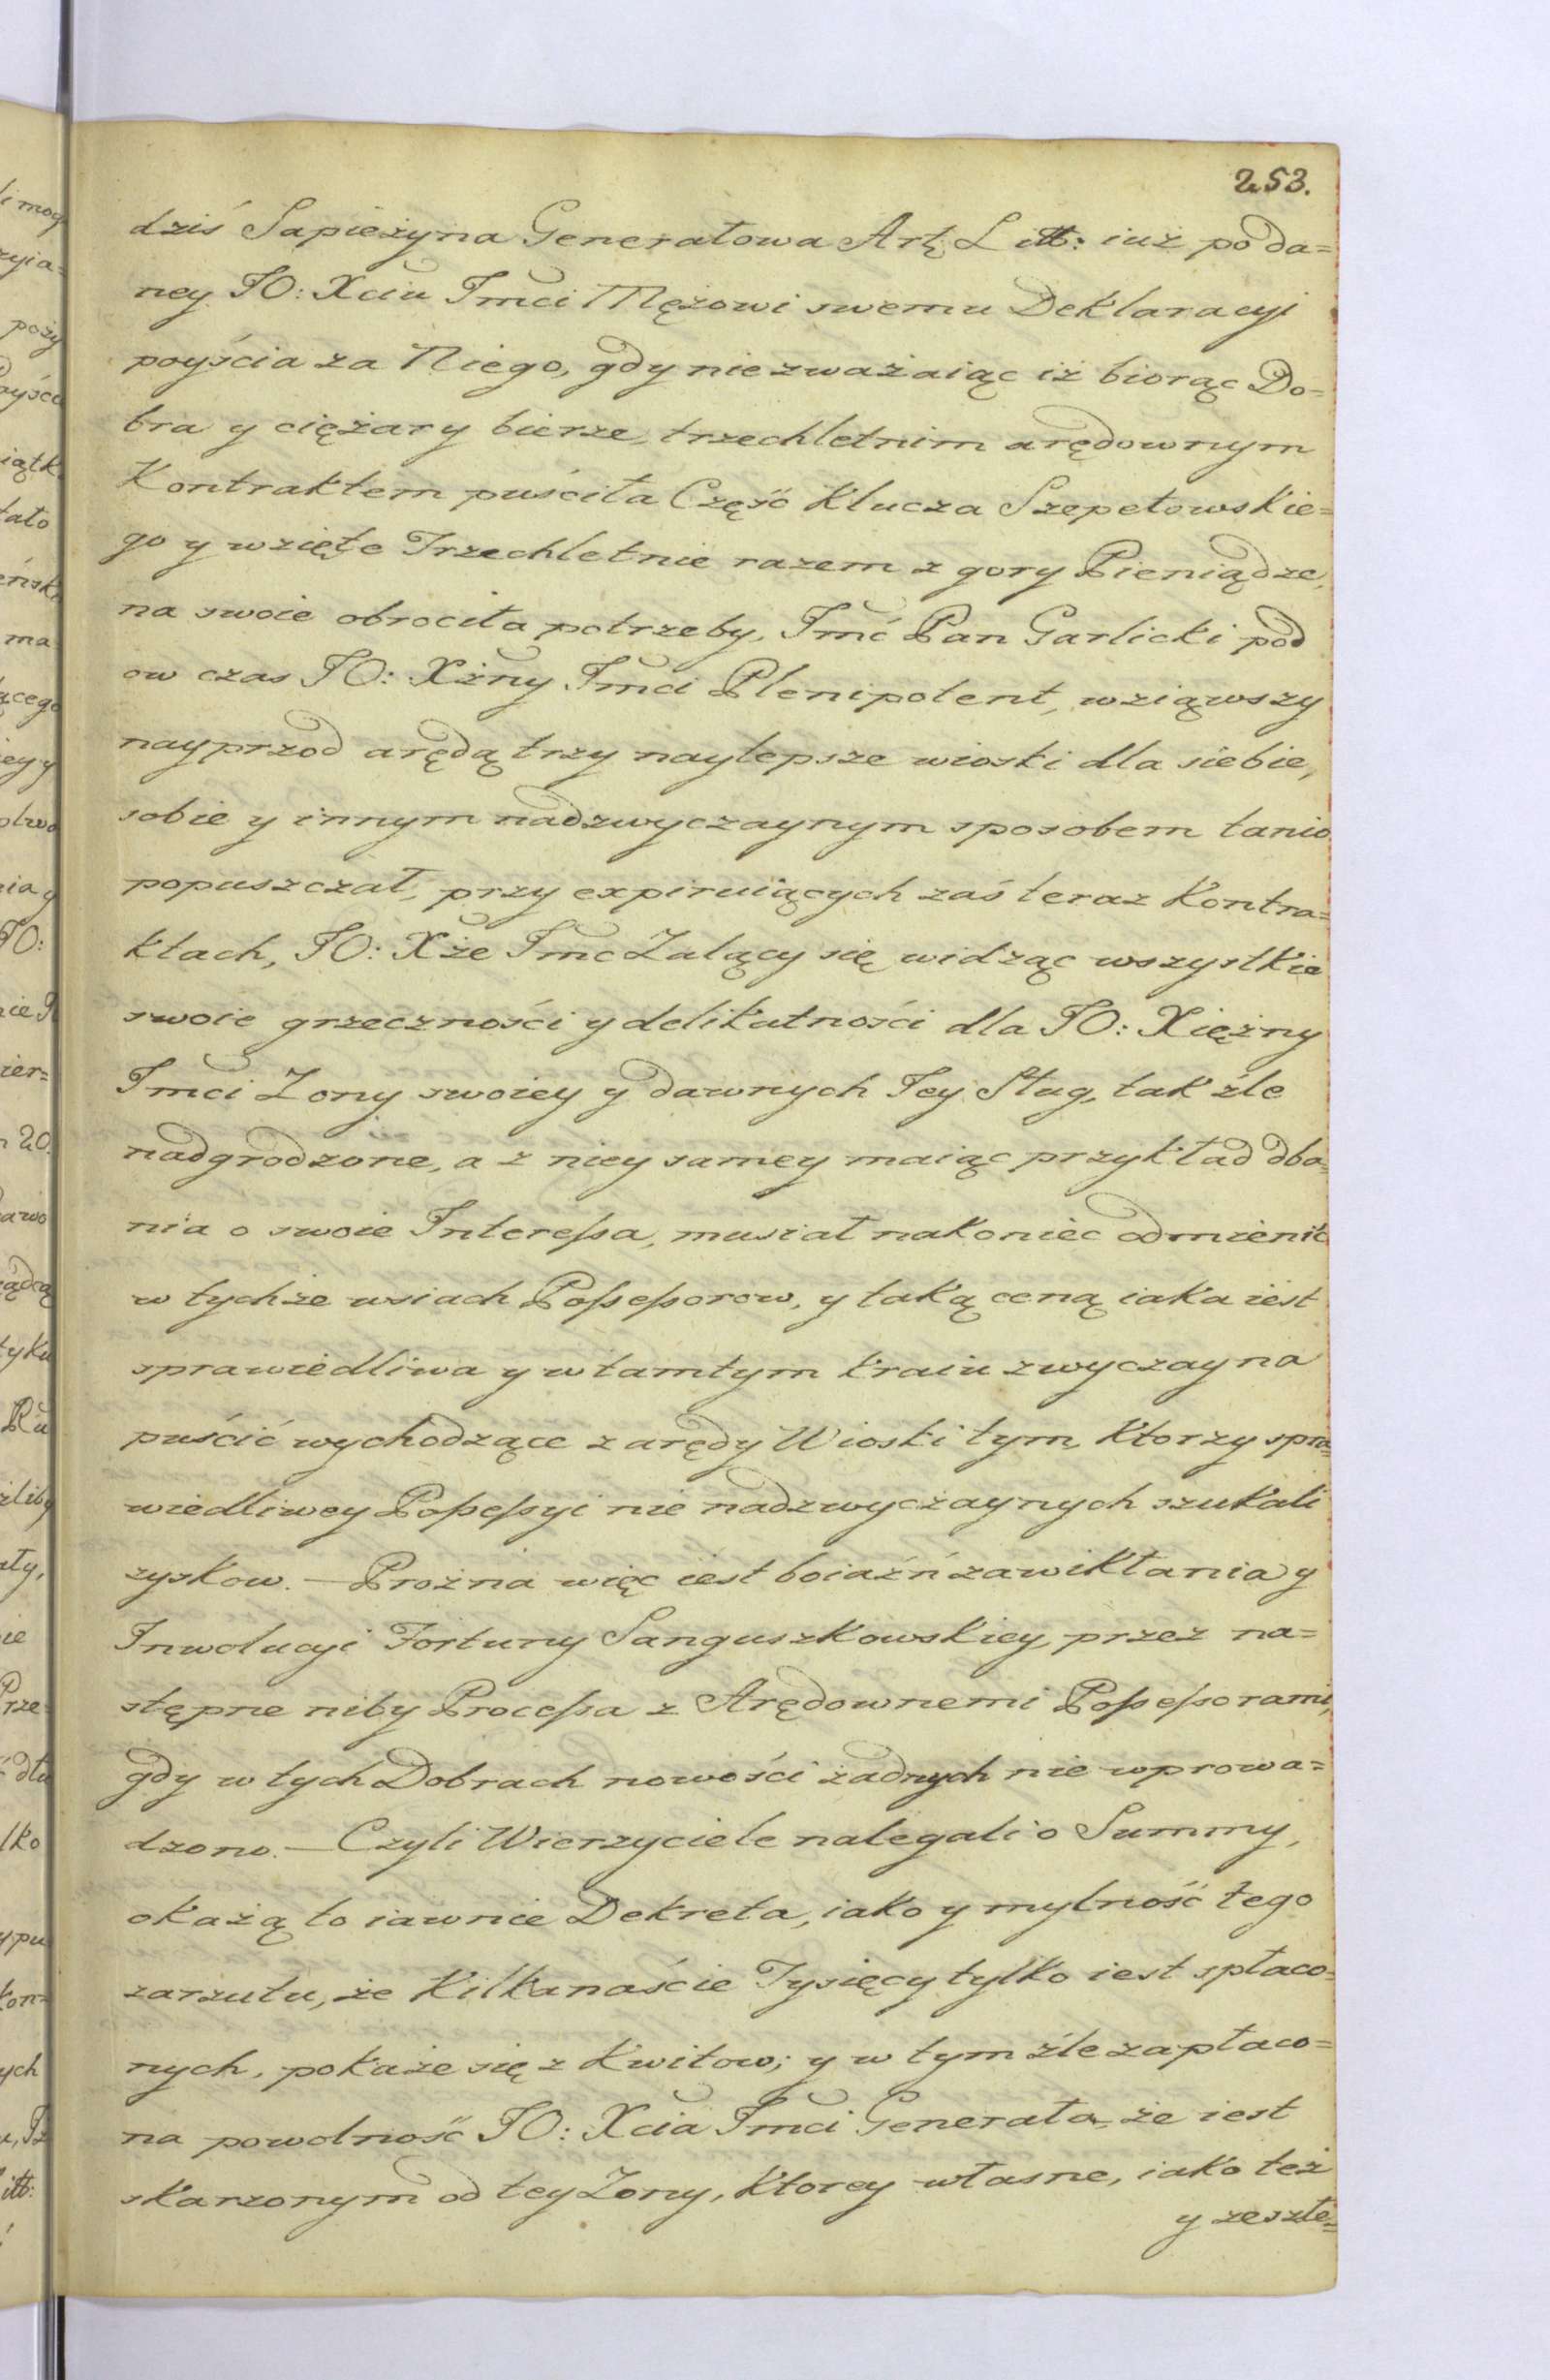 253.
dziś Sapieżyna Generałowa Artł: Litt: iuż po da=
ney JO: Xciu Jmci Mężowi swemu Deklaracyi
poyścia za Niego, gdy nie zważaiąc iż biorąc Do=
bra y ciężary bierze, trzechletnim arędownym
Kontraktem puściła Część Klucza Szepetowskie=
go y wzięte Trzechletnie razem z gory Pieniądze,
na swoie obrociła potrzeby, Jmć Pan Garlicki pod
ow czas JO: Xżny Jmci Plenipotent, wziąwszy
nayprzod arędą trzy naylepsze wioski dla siebie,
sobie y innym nadzwyczaynym sposobem tanio
popuszczał, przy expiruiących zaś teraz Kontra=
ktach, JO: Xże Jmc Zalący się widząc wszystkie
swoie grzeczności y delikatności dla JO: Xiężny
Jmci Zony swoiey y dawnych Jey Sług, tak źle
nadgrodzone, a z niey samey maiąc przykład dba=
nia o swoie Interessa, musiał nakoniec odmienić
w tychże wsiach Possessorow, y taką ceną iaka iest
sprawiedliwa y w tamtym kraiu zwyczayna
puścić wychodzące z arędy Wioski tym, Ktorzy spra=
wiedliwey Possessyi nie nadzwyczaynych szukali
zyskow. — Prożna więc iest boiaźń zawikłania y
Inwolucyi Fortuny Sanguszkowskiey, przez na=
stępne niby Processa z Arędownemi Possessorami,
gdy w tych Dobrach nowości żadnych nie wprowa=
dzono. — Czyli Wierzyciele nalegali o Summy,
okażą to iawnie Dekreta, iako y mylność tego
zarzutu, że Kilkanaście Tysięcy tylko iest spłaco=
nych, pokaże się z Kwitow; y w tym źle zapłaco=
na powolność JO: Xcia Jmci Generała, że iest
skarzonym od tey Zony, Ktorey własne, iako też
y zeszłe=